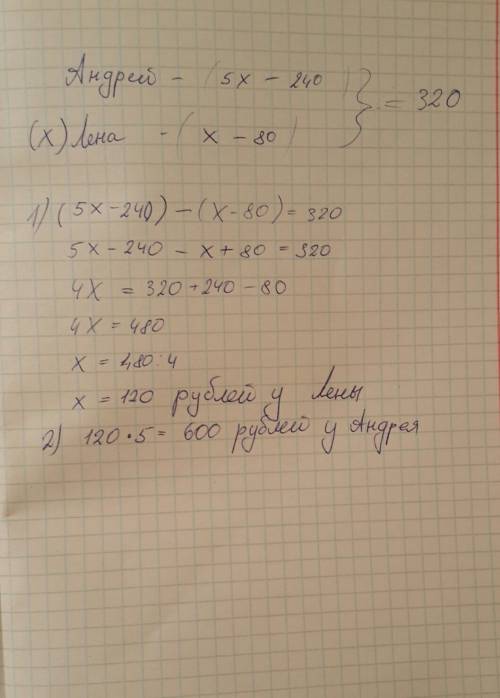 Андрей - (5х - 240)
(х) Лена - (х - 80)
} = 320
1) (5х-240) - (х-80) = 320
5х - 240 - х + 80 = 320
4х = 320 + 240 - 80
4х = 480
х = 480 : 4
х = 120 рублей у Лены
2) 120 · 5 = 600 рублей у Андрея